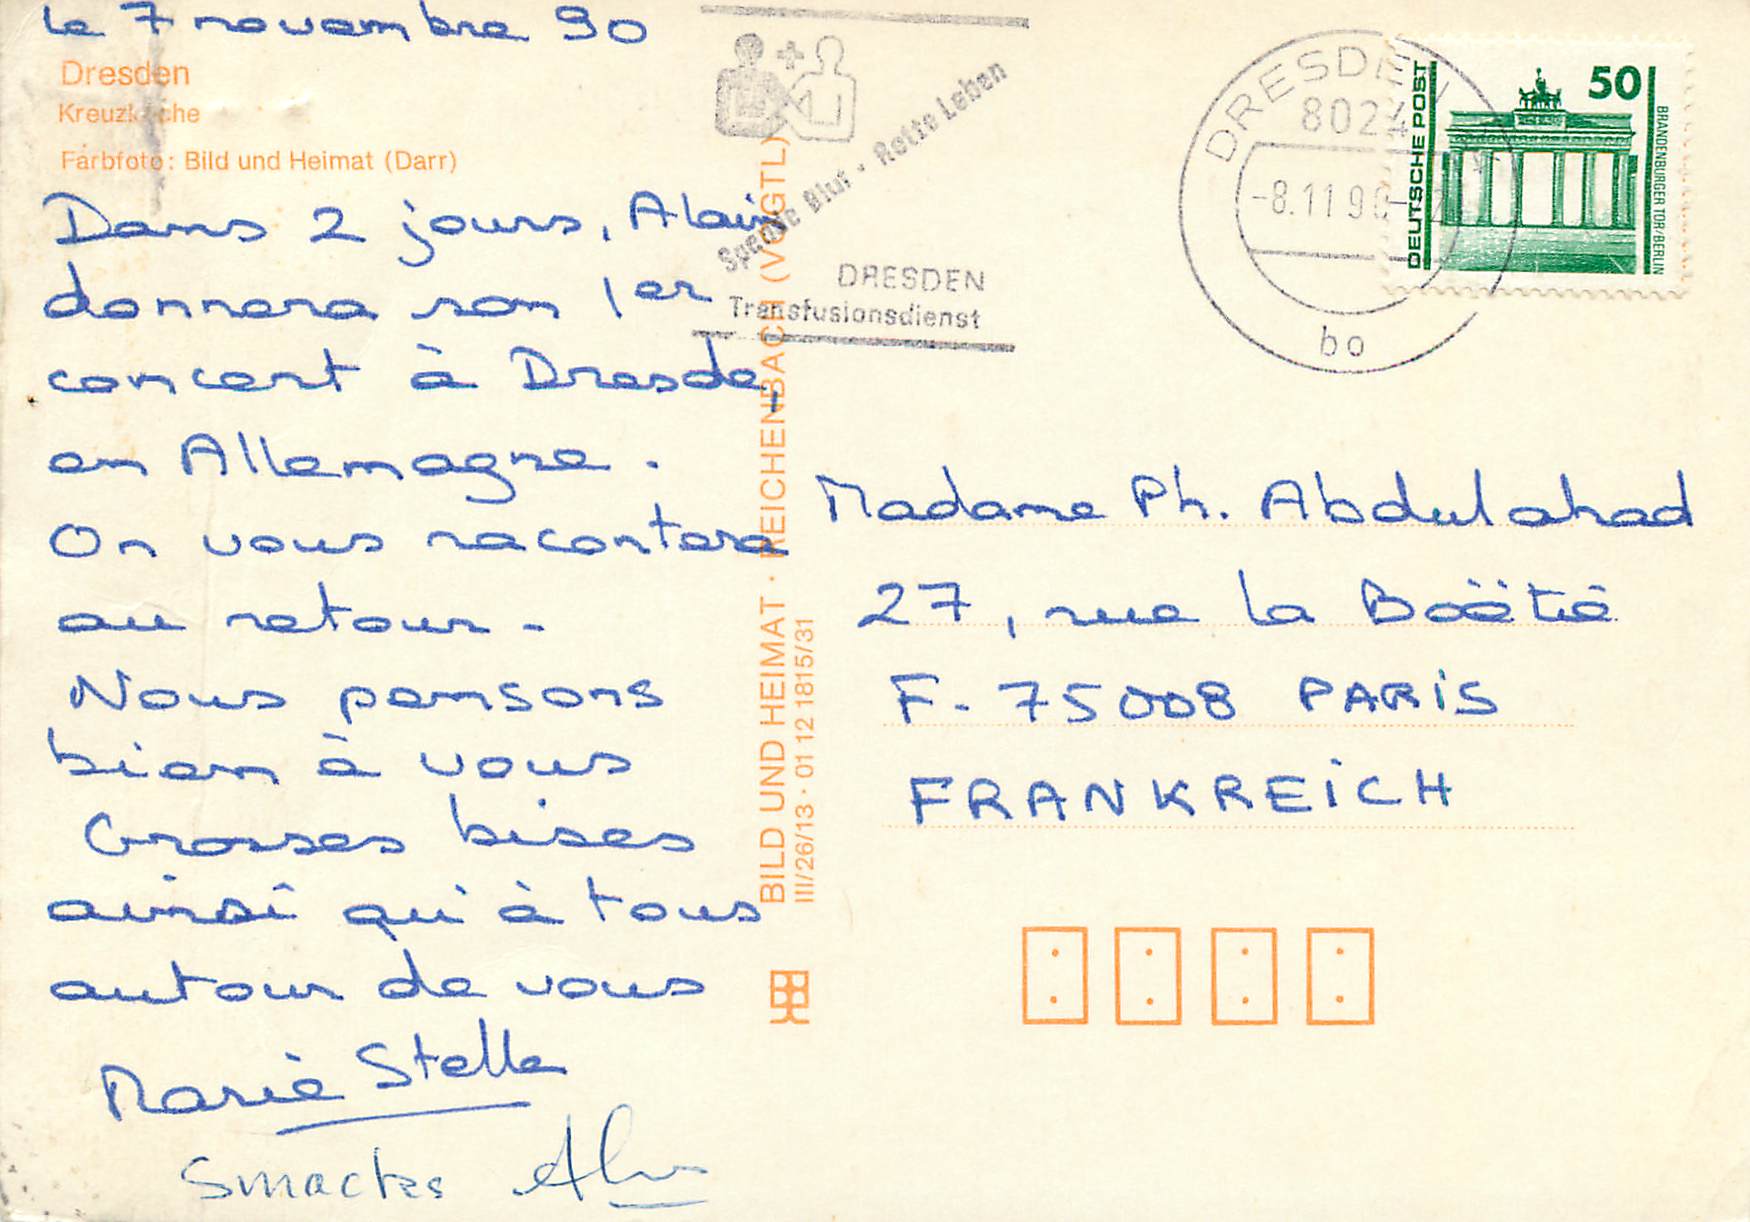 le 7 novembre 90
Dresden
Farbfoto: Bild und Heimat (Darr)
Dans 2 jours, Alain
donnera son 1er
concert à Dresde,
en Allemagne.
On vous racontera
au retour -
Nous pensons
bien à vous
Grosses bises
ainsi qu'à tous
autour de vous
Marie Stella
Smacks Alain
BILD UND HEIMAT · REICHENBACH (VOGTL)
III/26/13 · 01 12 1815/31
Spende Blut · Rette Leben
DRESDEN
Transfusionsdienst
DRESDEN
8024
-8.11.90
bo
DEUTSCHE POST
50
BRANDENBURGER TOR/BERLIN
Madame Ph. Abdulahad
27, rue la Boëtie
F- 75008 PARIS
FRANKREICH